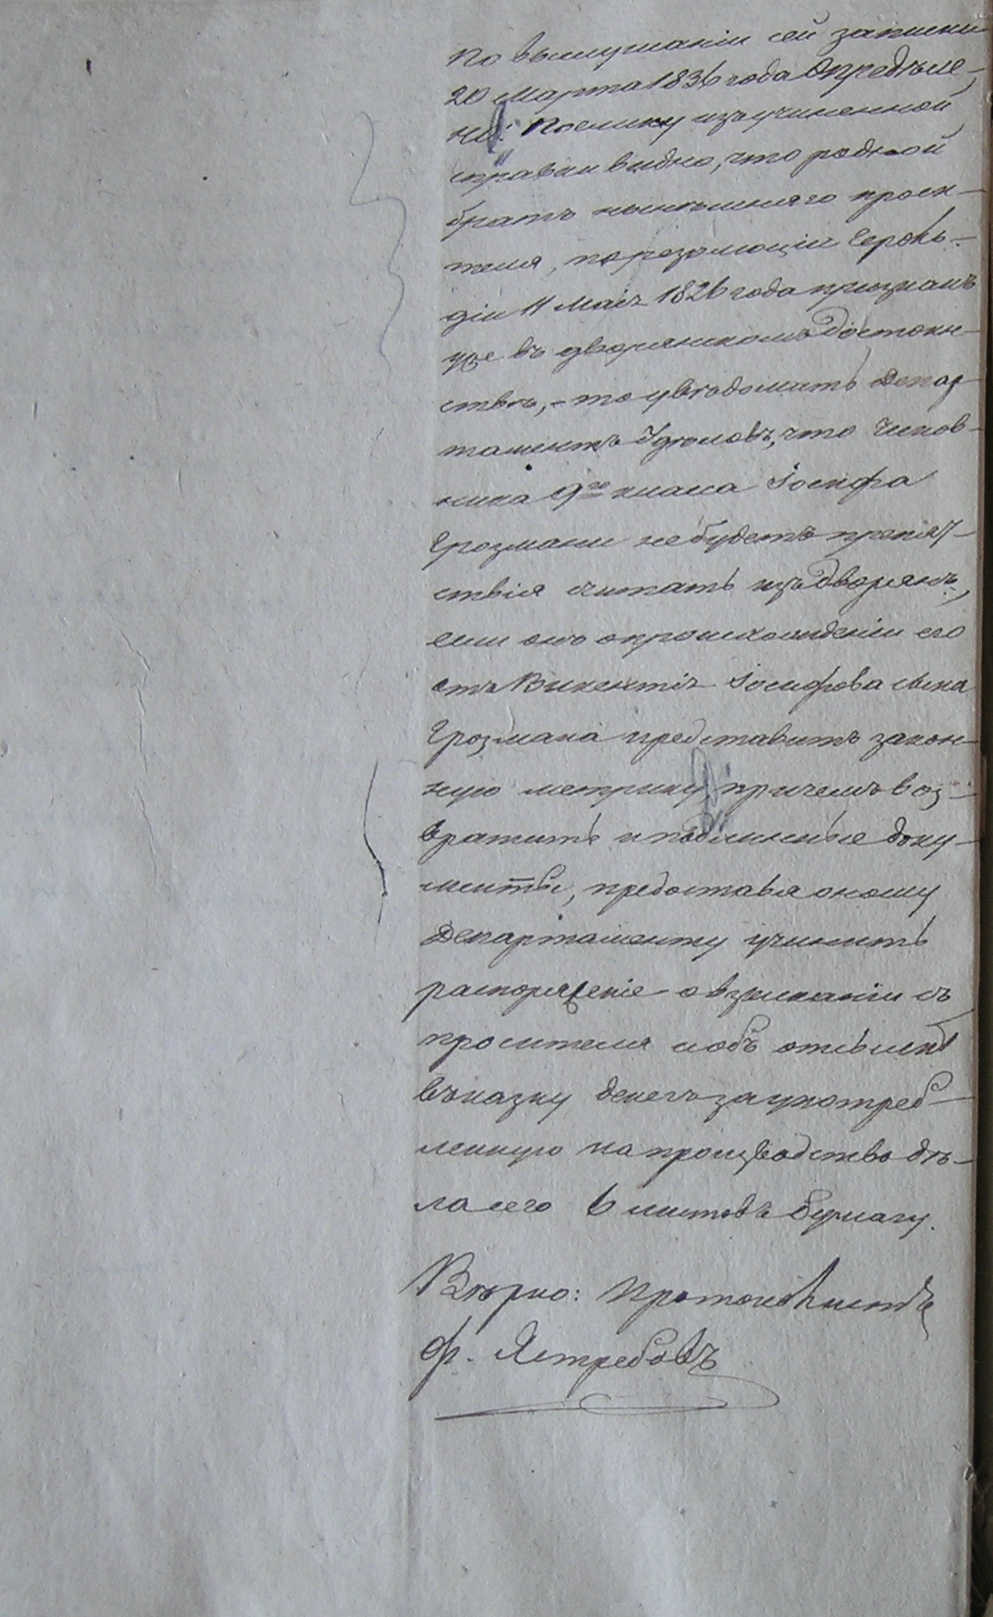 По выслушаніи сей записки
20 Марта 1836 года Опредѣле-
но: Поелику изъ учиненной
справки видно, что родной
братъ нынѣшняго проси-
теля, по резолюціи Герольд-
діи 11 Маія 1826 года признанъ
уже въ дворянскомъ достоин-
ствѣ, - то увѣдомить Депар-
таментъ Удѣловъ, что Чинов-
ника 9го класса Іосифа
Грозмани не будетъ препят-
ствія считать изъ дворянъ,
если онъ о происхожденіи его
отъ Викентія Іосифова сына
Грозмана представитъ закон-
ную метрику, причемъ воз-
вратить и подлинные доку-
менты, предоставя оному
Департаменту учинить
распоряженіе о взысканіи съ
просителя и объ отсылкѣ
въ казну денегъ за употреб-
ленную на производство дѣ-
ла сего 6 листовъ бумагу.
Вѣрно: Протоколистъ
Ф. Ястребовъ